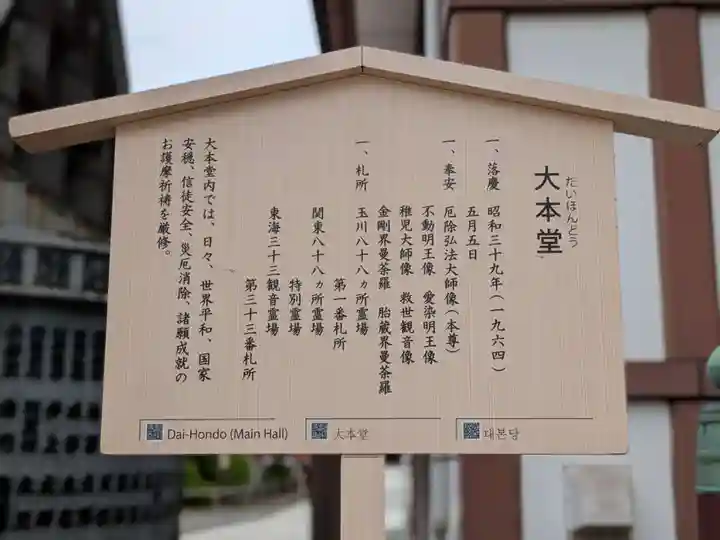 だいほんどう
大本堂
一、落慶　昭和三十九年(一九六四)
五月五日
一、奉安　厄除弘法大師像(本尊)
不動明王像　愛染明王像
稚児大師像　救世観音像
金剛界曼荼羅　胎蔵界曼荼羅
一、札所　玉川八十八ヵ所霊場
第一番札所
関東八十八ヵ所霊場
特別霊場
東海三十三観音霊場
第三十三番札所
大本堂内では、日々、世界平和、国家
安穏、信徒安全、災厄消除、諸願成就の
お護摩祈祷を厳修。
Dai-Hondo (Main Hall)
大本堂
대본당